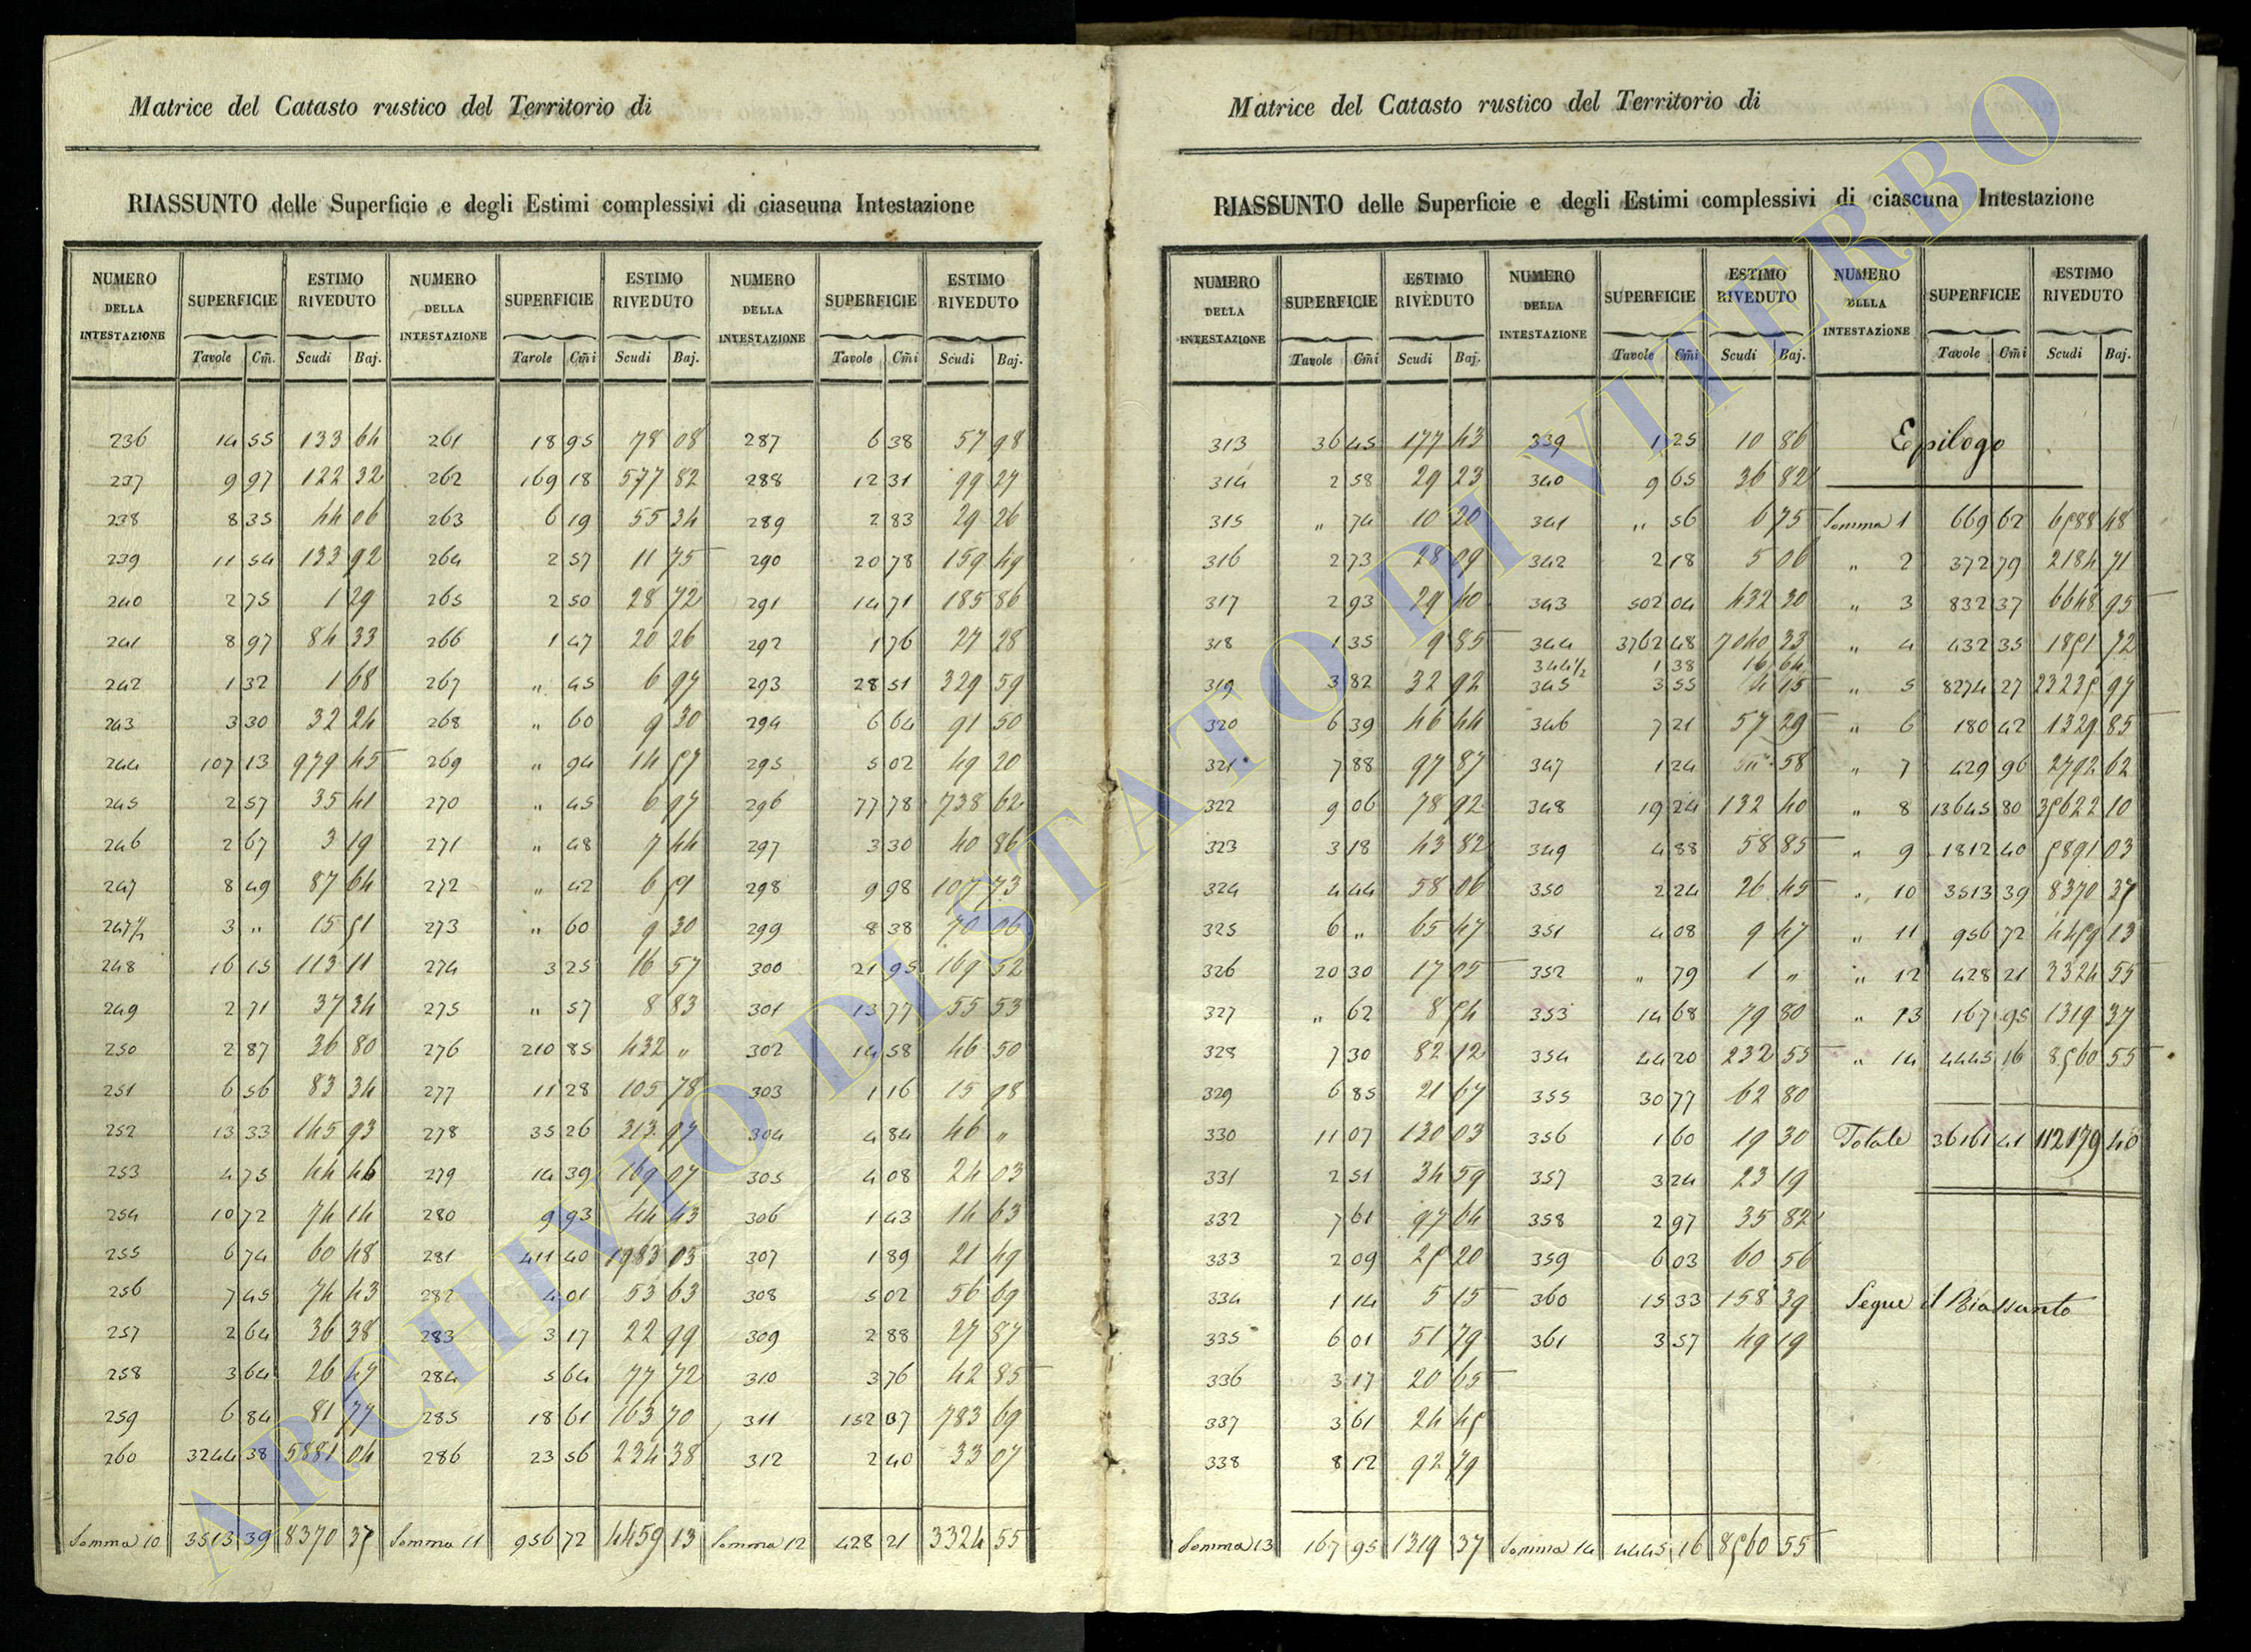 Matrice del Catasto rustico del Territorio di
RIASSUNTO delle Superficie e degli Estimi complessivi di ciascuna Intestazione
NUMERO DELLA INTESTAZIONE SUPERFICIE ESTIMO RIVEDUTO NUMERO DELLA INTESTAZIONE SUPERFICIE ESTIMO RIVEDUTO NUMERO DELLA INTESTAZIONE SUPERFICIE ESTIMO RIVEDUTO
Tavole Cm̃. Scudi Baj. Tavole Cm̃i Scudi Baj. Tavole Cm̃i Scudi Baj.
236 14 55 133 64 261 18 95 78 08 287 6 38 57 98
237 9 97 122 32 262 169 18 577 82 288 12 31 99 27
238 8 35 44 06 263 6 19 55 34 289 2 83 29 26
239 11 54 133 92 264 2 57 11 75 290 20 78 159 49
240 2 75 1 29 265 2 50 28 72 291 14 71 185 86
241 8 97 84 33 266 1 47 20 26 292 1 76 27 28
242 1 32 1 68 267 „ 45 6 97 293 28 51 329 59
243 3 30 32 24 268 „ 60 9 30 294 6 64 91 50
244 107 13 979 45 269 „ 94 14 57 295 5 02 49 20
245 2 57 35 41 270 „ 45 6 97 296 77 78 738 62
246 2 67 3 19 271 „ 48 7 44 297 3 30 40 86
247 8 49 87 64 272 „ 42 6 51 298 9 98 107 73
247 1/2 3 „ 15 51 273 „ 60 9 30 299 8 38 70 06
248 16 15 113 11 274 3 25 16 57 300 21 95 169 52
249 2 71 37 34 275 „ 57 8 83 301 13 77 55 53
250 2 87 36 80 276 210 85 432 „ 302 14 58 46 50
251 6 56 83 34 277 11 28 105 78 303 1 16 15 98
252 13 33 145 93 278 35 26 313 97 304 4 84 46 „
253 4 75 44 46 279 14 39 169 07 305 4 08 24 03
254 10 72 74 14 280 9 93 44 43 306 1 43 14 63
255 6 74 60 48 281 411 40 1983 03 307 1 89 21 49
256 7 45 74 43 282 4 01 53 63 308 5 02 56 69
257 2 64 36 38 283 3 17 22 99 309 2 88 27 87
258 3 64 26 47 284 5 64 77 72 310 3 76 42 85
259 6 84 81 77 285 18 61 163 70 311 152 37 783 69
260 3244 38 5881 04 286 23 56 234 38 312 2 40 33 07
Somma 10 3513 39 8370 37 Somma 11 956 72 4459 13 Somma 12 428 21 3324 55
Matrice del Catasto rustico del Territorio di
RIASSUNTO delle Superficie e degli Estimi complessivi di ciascuna Intestazione
NUMERO DELLA INTESTAZIONE SUPERFICIE ESTIMO RIVEDUTO NUMERO DELLA INTESTAZIONE SUPERFICIE ESTIMO RIVEDUTO NUMERO DELLA INTESTAZIONE SUPERFICIE ESTIMO RIVEDUTO
Tavole Cm̃i Scudi Baj. Tavole Cm̃i Scudi Baj. Tavole Cm̃i Scudi Baj.
313 36 45 177 43 339 1 25 10 86 Epilogo
314 2 58 29 23 340 9 65 36 82
315 „ 74 10 20 341 „ 56 6 75 Somma 1 669 62 6588 48
316 2 73 28 09 342 2 18 5 06 „ 2 372 79 2184 71
317 2 93 29 40 343 502 04 432 30 „ 3 832 37 6648 95
318 1 35 9 85 344 3762 48 7040 33 „ 4 432 35 1851 72
344 1/2 1 38 16 64
319 3 82 32 92 345 3 55 4 15 „ 5 8274 27 23235 97
320 6 39 46 44 346 7 21 57 29 „ 6 180 42 1329 85
321 7 88 97 87 347 1 24 58 „ 7 429 96 2792 62
322 9 06 78 92 348 19 24 132 40 „ 8 13645 80 35622 10
323 3 18 43 82 349 4 88 58 85 „ 9 1812 40 5891 03
324 4 44 58 06 350 2 24 26 45 „ 10 3513 39 8370 37
325 6 „ 65 47 351 4 08 9 47 „ 11 956 72 4459 13
326 20 30 17 05 352 „ 79 1 „ „ 12 428 21 3324 55
327 „ 62 8 54 353 14 68 79 80 „ 13 167 95 1319 37
328 7 30 82 12 354 44 20 232 55 „ 14 4445 16 8560 55
329 6 85 21 67 355 30 77 62 80
330 11 07 130 03 356 1 60 19 30 Totale 36161 41 112179 40
331 2 51 34 59 357 3 24 23 19
332 7 61 97 64 358 2 97 35 82
333 2 09 25 20 359 6 03 60 56
334 1 14 5 15 360 15 33 158 39 Segue il Riassunto
335 6 01 51 79 361 3 57 49 19
336 3 17 20 65
337 3 61 24 45
338 8 12 92 79
Somma 13 167 95 1319 37 Somma 14 4445 16 8560 55
ARCHIVIO DI STATO DI VITERBO